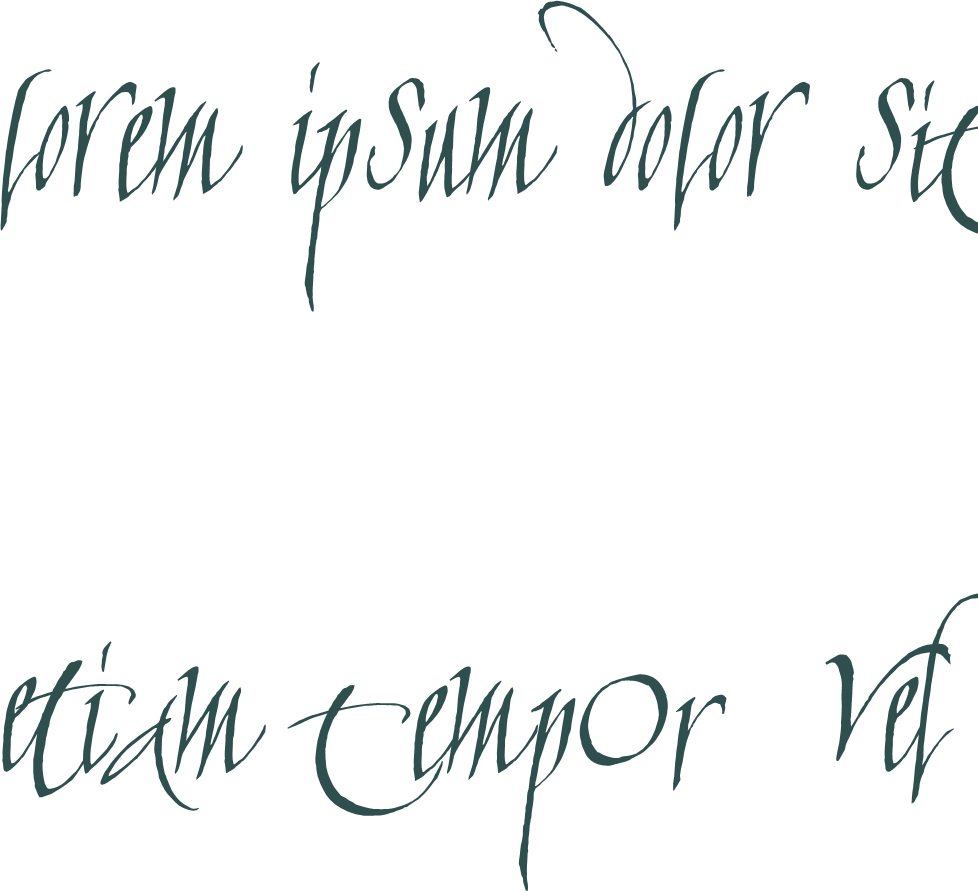 lorem ipsum dolor sit
etiam tempor vel